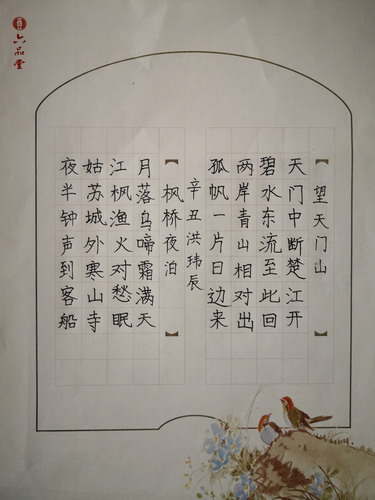 六品堂
【望天门山】
天门中断楚江开
碧水东流至此回
两岸青山相对出
孤帆一片日边来
辛丑洪玮辰
【枫桥夜泊】
月落乌啼霜满天
江枫渔火对愁眠
姑苏城外寒山寺
夜半钟声到客船